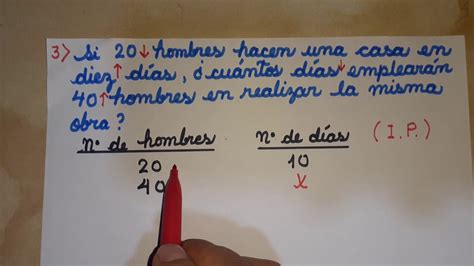 3) Si 20↓ hombres hacen una casa en
diez↑ días, ¿cuántos días↓ emplearán
40↑ hombres en realizar la misma
obra?
N° de hombres N° de días (I.P.)
20 10
40 X